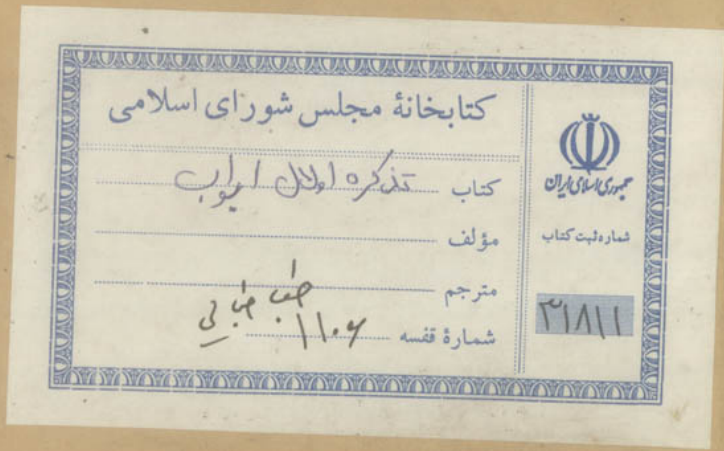 کتابخانهٔ مجلس شورای اسلامی
کتاب تذکره اولی الالباب
مؤلف
مترجم
طباطبائی
شمارهٔ قفسه ۱۱۰۶
جمهوری اسلامی ایران
شماره ثبت کتاب
۳۱۸۱۱